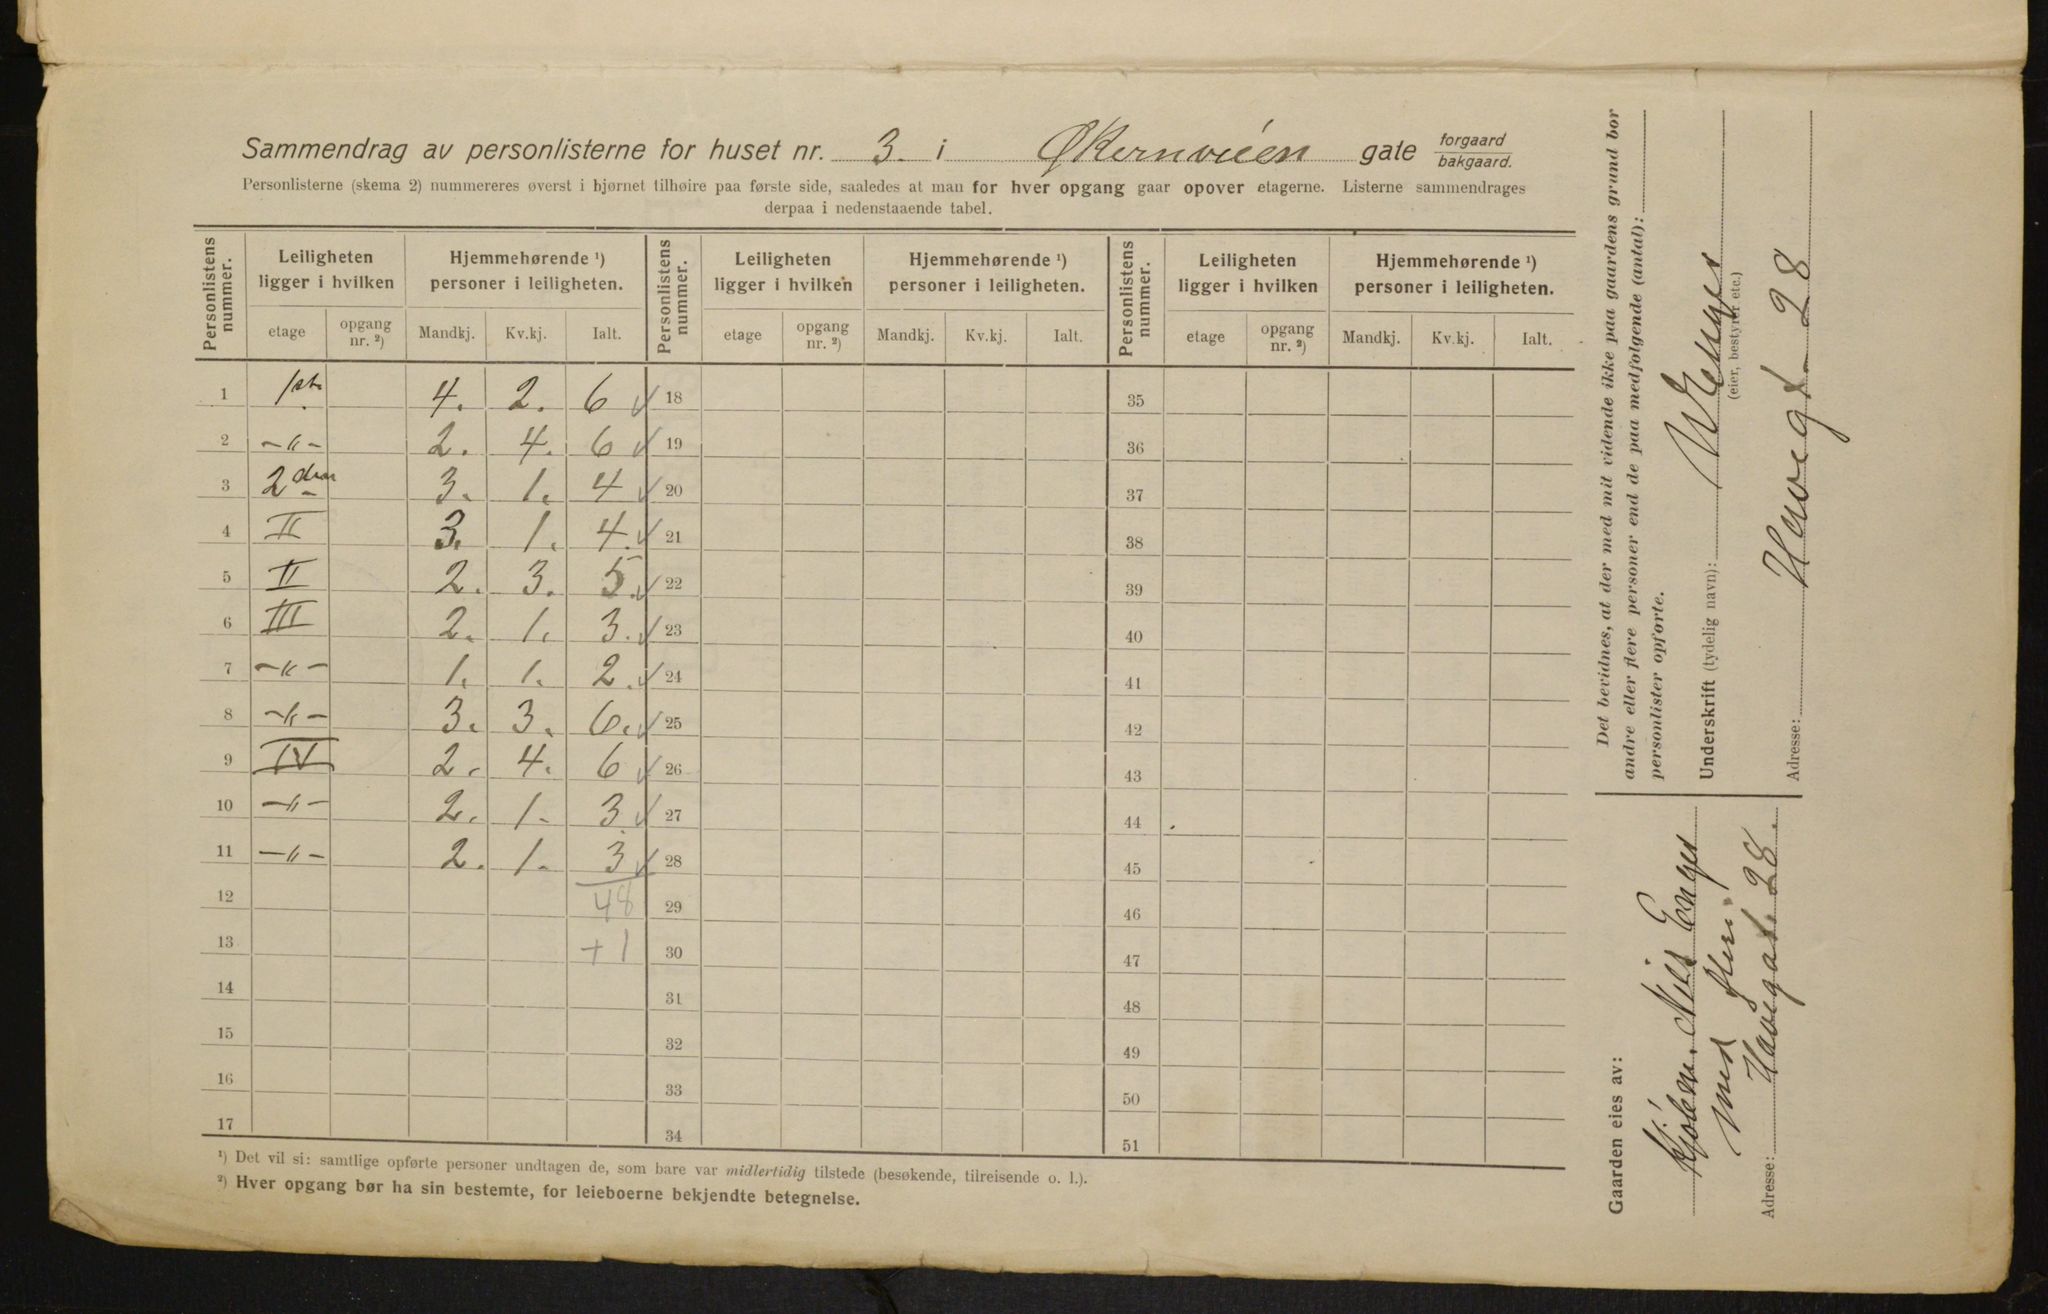 Sammendrag av personlisterne for huset nr. 3. i Økernveien gate forgaard bakgaard.
Personlisterne (skema 2) nummereres øverst i hjørnet tilhøire paa første side, saaledes at man for hver opgang gaar opover etagerne. Listerne sammendrages
derpaa i nedenstaaende tabel.
Personlistens nummer. Leiligheten ligger i hvilken Hjemmehørende ¹) personer i leiligheten. Personlistens nummer. Leiligheten ligger i hvilken Hjemmehørende ¹) personer i leiligheten. Personlistens nummer. Leiligheten ligger i hvilken Hjemmehørende ¹) personer i leiligheten.
etage opgang nr. ²) Mandkj. Kv.kj. Ialt. etage opgang nr. ²) Mandkj. Kv.kj. Ialt. etage opgang nr. ²) Mandkj. Kv.kj. Ialt.
1 1ste 4. 2. 6 18 35
2 -"- 2. 4. 6 19 36
3 2den 3. 1. 4 20 37
4 II 3. 1. 4. 21 38
5 II 2. 3. 5. 22 39
6 III 2. 1. 3. 23 40
7 -"- 1. 1. 2. 24 41
8 -"- 3. 3. 6. 25 42
9 IV 2. 4. 6 26 43
10 -"- 2. 1. 3. 27 44
11 -"- 2. 1. 3 28 45
12 48 29 46
13 +1 30 47
14 31 48
15 32 49
16 33 50
17 34 51
¹) Det vil si: samtlige opførte personer undtagen de, som bare var midlertidig tilstede (besøkende, tilreisende o. l.).
²) Hver opgang bør ha sin bestemte, for leieboerne bekjendte betegnelse.
Det bevidnes, at der med mit vidende ikke paa gaardens grund bor
andre eller flere personer end de paa medfølgende (antal):
personlister opførte.
Underskrift (tydelig navn): Enges
(eier, bestyrer etc.)
Adresse: 28
Gaarden eies av:
Nils Enges
med
Adresse: 28.